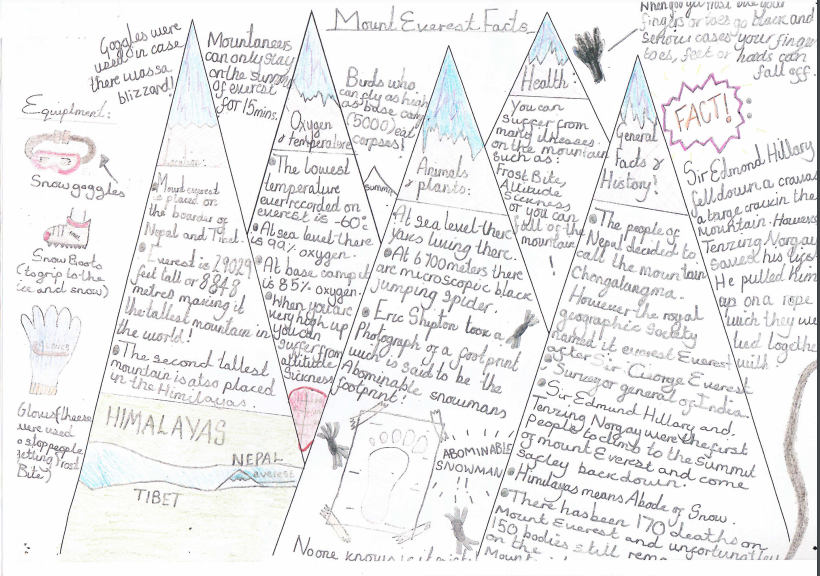 Mount Everest Facts
Goggles were
used in case
there was a
blizzard!
Equiptment:
Snow goggles
Snow Boots
(to grip to the
ice and snow)
Gloves (these
were used
o stop people
getting frost
Bite)
Mountaneers
can only stay
on the summit
of everest
for 15 mins.
Location:
Mount everest
is placed on
the boarder of
Nepal and Tibet.
Everest is 29029
feet tall or 8848
metres making it
the tallest mountain in
the world!
The second tallest
mountain is also placed
in the Himilayas.
HIMALAYAS
NEPAL
averest
TIBET
Oxygen
& temperature
The lowest
temperature
ever recorded on
everest is -60°c
At sea level there
is 99% oxygen.
At base camp it
is 85% oxygen.
When you are
very high up
you can
suffer from
altitude
Sickness
Birds who
can fly as high
as base camp
(5000) eat
corpses!
summit
Animals
& plants:
At sea level there
yaks living there.
At 6700 meters there
are microscopic black
jumping spider.
Eric Shipton took a
Photograph of a footprint
wich is said to be the
Abominable snowmans
footprint!
ABOMINABLE
SNOWMAN
No one knows
Health:
You can
suffer from
many illnesses
on the mountain
such as:
Frost Bite,
Altitude
Sickness
or you can
fall of the
mountain
!
When you get
fingers or toes go black and
serious cases your finge
toes, feet or hands can
fall off.
General
Facts &
History!
The people of
Nepal decided to
call the mountain
Chengalungma.
However the royal
geographic society
named it everest Everest
after Sir George Everest
Surveyor general of India.
Sir Edmund Hillary and
Tenzing Norgay were the first
People to climb to the Summit
of mount Everest and come
safley back down!
Himilayas means Abode of Snow.
There has been 170 deaths on
Mount Everest and unfortunatley
150 bodies still rema
on the
Mount
FACT!
Sir Edmond Hillary
fell down a crevas
a large crack in the
mountain. However
Tenzing Norgay
saved his life
He pulled him
up on a rope
wich they we
tied togethe
with.